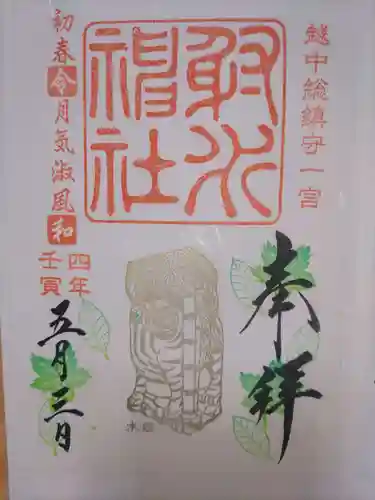 越中総鎮守一宮
射水
神社
奉拝
初春令月気淑風和
四年
壬寅
五月三日